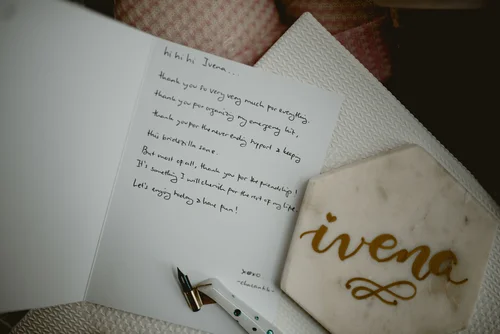 hi hi hi Ivena...
thank you so very very much for everything.
thank you for organizing my emergency kit,
thank you for the never ending support & keepy
this bridezilla sane.
But most of all, thank you for the friendships!
It's something I will cherish for the rest of my life.
Let's enjoy today & have fun!
xoxo
ivena